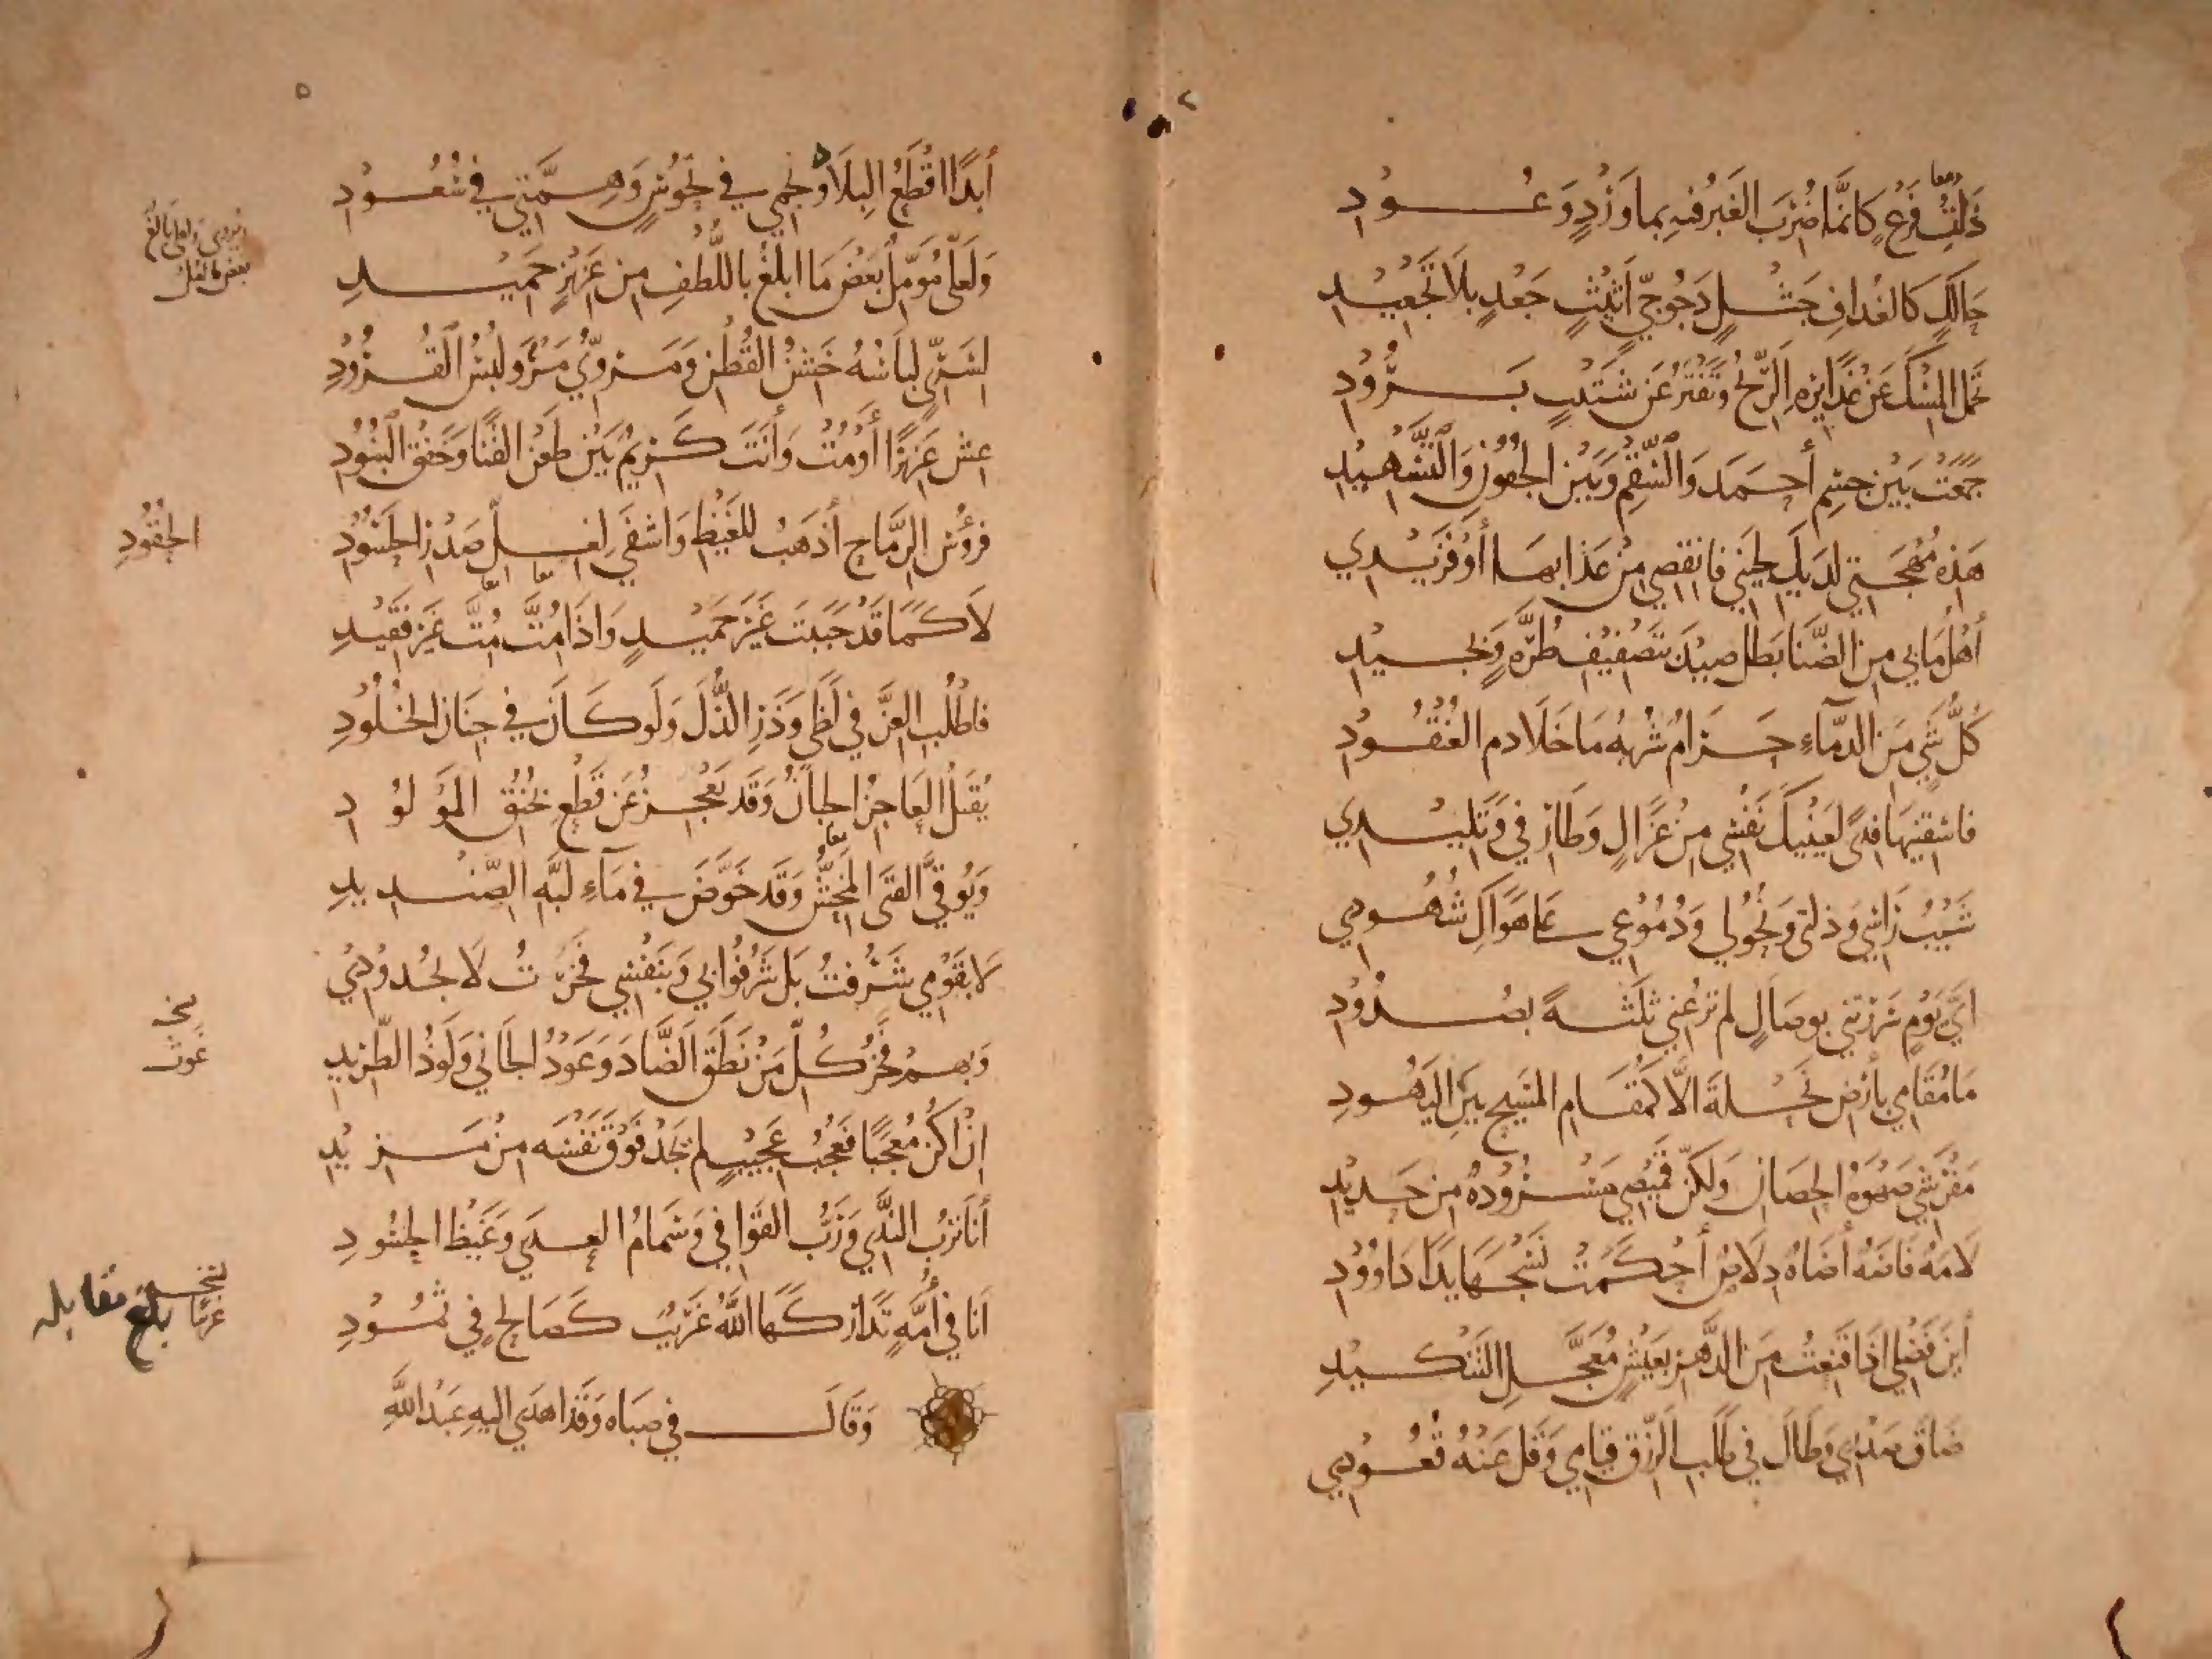 ذَاتِ فَرْعٍ كَانَّمَا ضُرِبَ العَنْبَرُ فيهِ بماوَرْدٍ وَعُودِ
معا
حَالِكٍ كَالغُدافِ جَثْلٍ دَجُوجِيٍّ اَثِيْثٍ جَعْدٍ بِلَا تَجْعِيْدِ
تَحْمِل المِسْكَ عَنْ غَدَايِرِهِ الرِّيْحُ وَتَفْتَرُّ عَن شَتِيْبٍ بَرُوْدِ
جَمَعَتْ بَيْن جسْمِ أحْمَدَ وَالسُّقْمِ وَبَيْن الجُفُوْنِ وَالتَّسْهِيْدِ
هَذِهِ مُهْجَتِي لَدَيكِ لِحَيْنِي فَانقصِي مِنْ عَذَابهَا أوْ فَزِيْدِي
أَهْلُ مَا بي مِن الضَّنَا بَطَلٌ صِيْدَ بتَصْفِيْفِ طُرَّهٍ وَبِجِيْدِ
كُلُّ شَيٍ مِنَ الدِّمَآءِ حَرَامٌ شُرْبُهُ مَا خَلَا دم العُنْقُودِ
فاسْقِنِيْهَا فِدًي لِعَيْنَيْكَ نَفْسِي مِنْ غَزَالٍ وَطَارِفي وَتَلِيْدِي
شَيْبُ رَاسي وَذلتي وَنُحُوْلي وَدُمُوْعِي عَلى هَوَاكِ شُهُودِي
ايَّ يَوْمٍ سَرَرْتَني بوصَالٍ لم تَرُعْنِي ثَلَثَـةً بصُدُوْدِ
مَا مُقَامِي بأَرْضِ نَحْلَةَ الَّا كَمُقَامِ المَسِيحِ بَيْنَ اليَهُودِ
مَفْرَشِي صَهْوَةُ الحِصَانِ وَلَكِنّ قَمِيْصِي مَسْرُوْدَةٌ مِن حَدِيْدِ
لَامَةٌ فَاضَةٌ أضَاةٌ دِلَاصٌ أَحْكَمَتْ نَسْجَهَا يَدَا دَاوُوْدِ
أَيْنَ فَضْلي اذَا قَنِعْتُ مِنَ الدَّهْرِ بعَيْشٍ مُعَجَّلِ التَنْكِيْدِ
ضَاقَ صَدْرِي وَطَالَ في طَلَبِ الرِّزْقِ قِيَامي وَقَلَّ عَنْهُ قُعُوْدِي
٥
أَبَدًا اقْطَعُ البِلَادَ وَنَجْمِي في نُحُوْسٍ وَهِمَّتِي في سُعُوْدِ
وَلَعَلّي مُؤَمِّلٌ بَعْضَ مَا ابْلُغُ باللُّطْفِ مِن عَزِيْزٍ حَمِيْدِ
لِسَرِيٍّ لِبَاسُهُ خَشِنُ القُطْنِ وَمَرْوِيُّ مَرْوَ لِبْسُ القُرُوْدِ
عِش عَزِيْزًا أَوْ مُتْ وَأَنْتَ كَرِيْمٌ بَيْنَ طَعْنِ القَنَا وَخَفْقِ البُنُوْدِ
فرُؤُسُ الرِّمَاحِ أَذْهَبُ للغَيْظِ وَاَشْفَي لِغِلّ صَدْرِ الحَسُوْدِ
الحَقُوْدِ
لَا كَمَا قَدْ حَيِيْتَ غَيْرَ حَمِيْدٍ وَاذَا مُتَّ مُتَّ غَيْرَ فَقِيْدِ
فاطْلُبِ العِزَّ في لَظًى وَذَرِ الذُّلَّ وَلَو كَانَ في جِنَانِ الخُلُوْدِ
يُقْتَلُ العَاجِزُ الجبَانُ وَقَد يَعْجِزُ عَن قَطْعِ بُخْنُقِ المَوْلُوْدِ
وَيُوَقَّى الفَتَى المِخَشُّ وَقَد خَوَّضَ في مَآءِ لَبَّهِ الصّنْدِيدِ
لَا بقَوْمِي شَرُفْتُ بَل شَرُفُوا بي وَبنَفْسِي فَخَرْتُ لَا بجُدُوْدِي
وَبهم فَخْرُ كُلّ مَنْ نَطَقَ الضَّادَ وَعَوْذُ الجَاني وَلَوْذُ الطَّرِيْدِ
غوث
اِنْ اَكُنْ مُعْجَبًا فَعُجْبُ عَجِيْبٍ لم يَجِدْ فَوْقَ نَفْسِه مِنْ مَزِيْدِ
أَنَا تِرْبُ النَّدَي وَرَبُّ القَوَافي وَسِمَامُ العِدَي وَغَيْظُ الحَسُوْدِ
اَنَا في أُمَّهٍ تَدَارَكَهَا اللَّهُ غَرِيْبٌ كَصَالِحٍ في ثَمُوْدِ
بلغ مقابله
وَقَالَ في صِبَاه وَقَد اهْدَي اليهِ عَبْدُ اللَّهِ